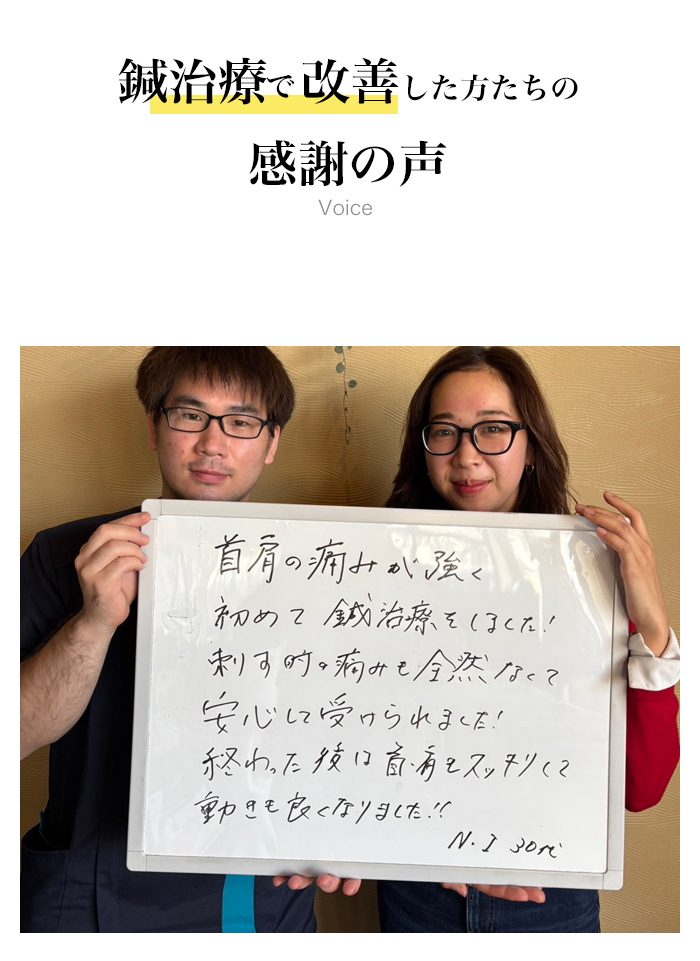 鍼治療で改善した方たちの
感謝の声
Voice
首肩の痛みが強く
初めて鍼治療をしました!
刺す時の痛みも全然なくて
安心して受けられました!
終わった後は首・肩もスッキリして
動きも良くなりました!!
N.I 30代